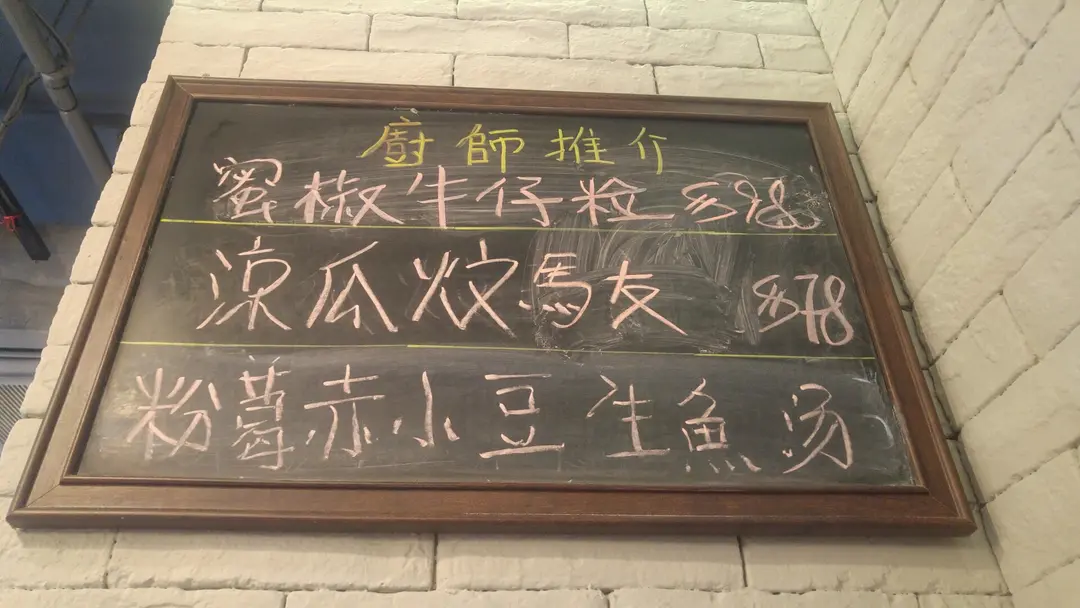 廚師推介
蜜椒牛仔粒 $98
涼瓜炆馬友 $78
粉葛赤小豆生魚汤